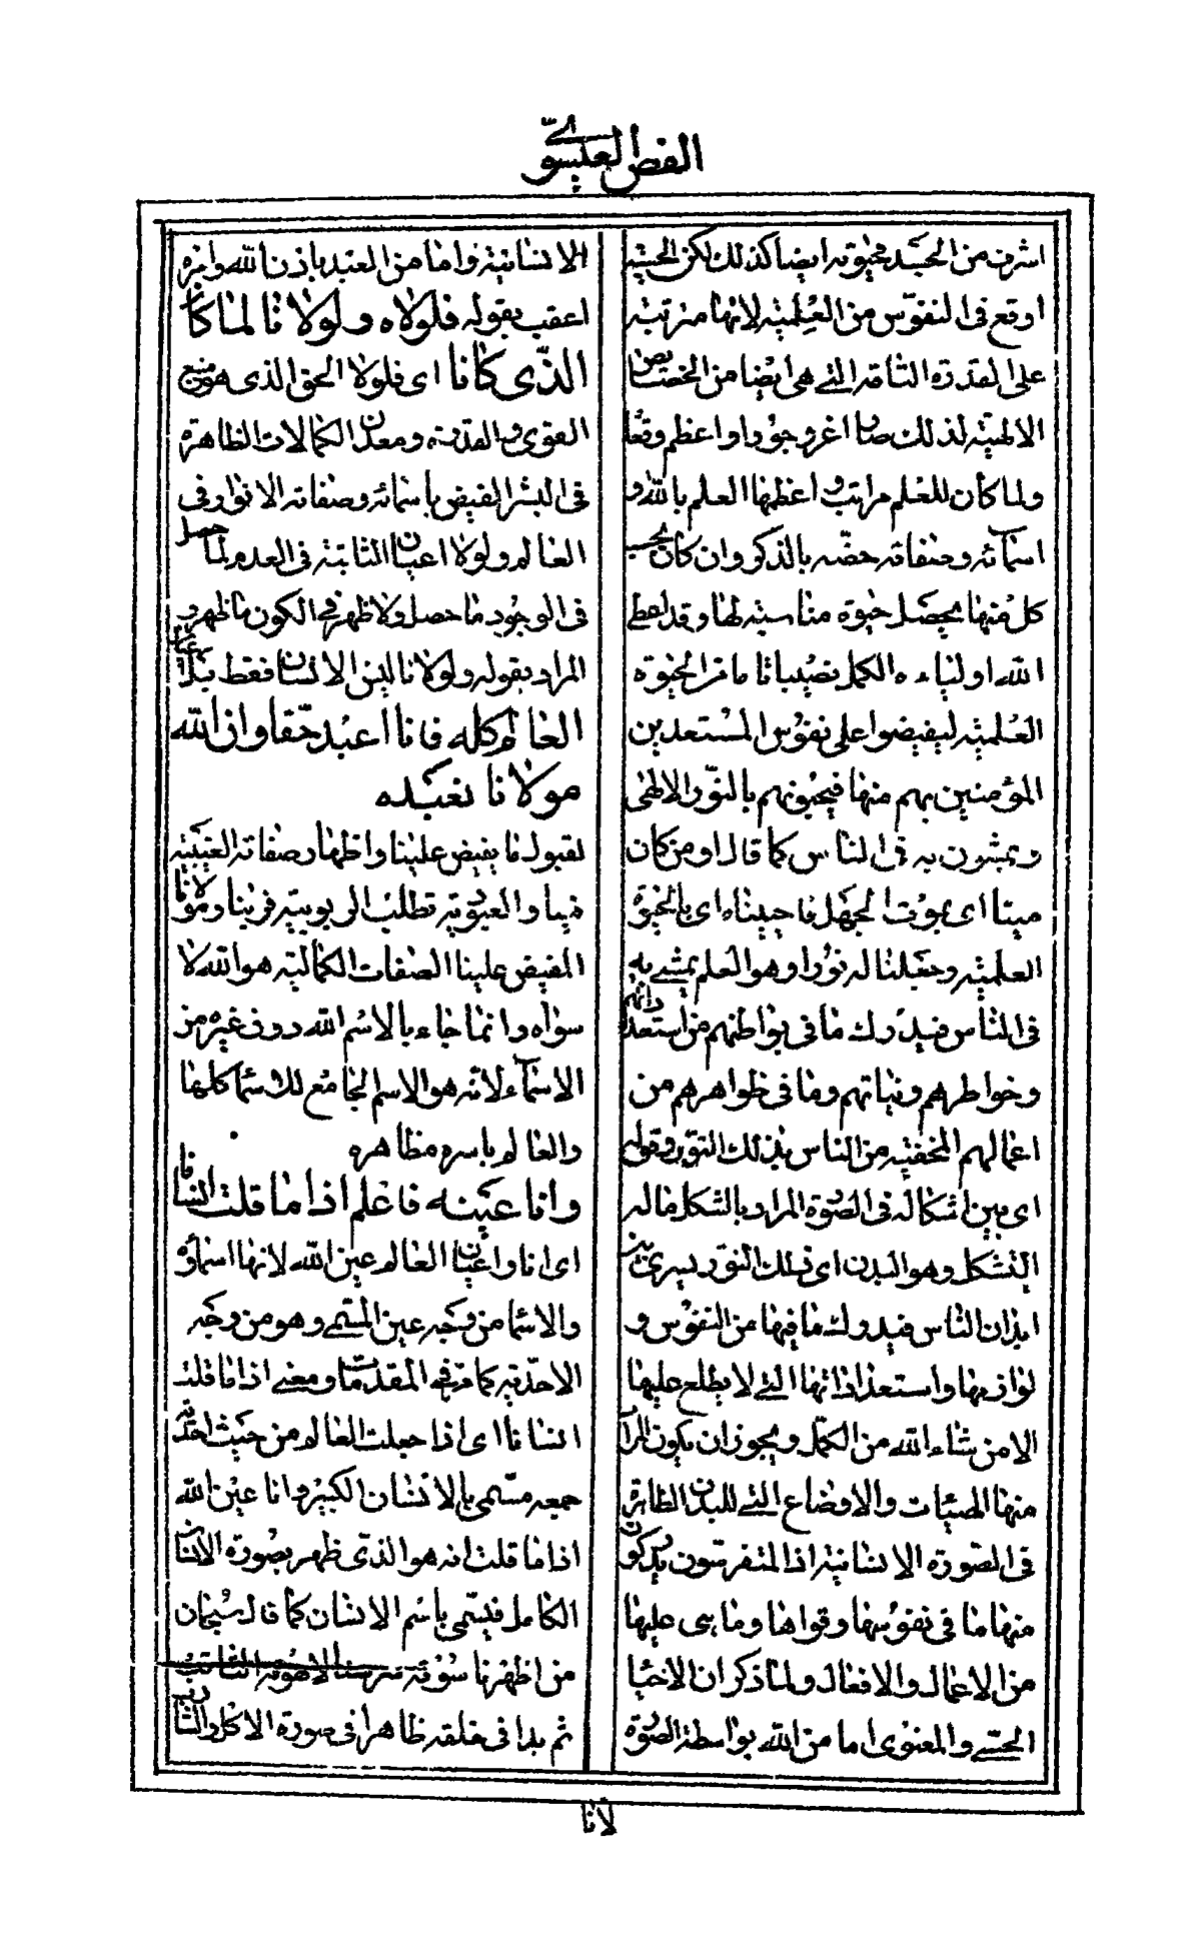 الفص العيسوى
اشرف من الجسد فحيوته ايضا كذلك لكن الحسية
اوقع فى النفوس من العلمية لانها مترتبة
على القدرة التامة التى هى ايضا من الخصائص
الالهية لذلك صار اعز وجودا واعظم وقعا
ولما كان للعلم مراتب و اعظمها العلم بالله و
اسمائه وصفاته خصه بالذكر وان كان بحسب
كل منها يحصل حيوة مناسبة لها وقد اعطى
الله اولياءه الكمل نصيبا تاما من الحيوة
العلمية ليفيضوا على نفوس المستعدين
المؤمنين بهم منها فيحيونهم بالنور الالهى
ويمشون به فى الناس كما قال او من كان
ميتا اى بموت الجهل فاحييناه اى بالحيوة
العلمية وجعلنا له نورا وهو العلم يمشى به
فى الناس فيدرك ما فى بواطنهم من استعداداتهم
وخواطرهم ونياتهم وما فى ظواهرهم من
اعمالهم المخفية من الناس بذلك النور وقوله
اى بين اشكاله فى الصورة المراد بالشكل ماله
التشكل وهو البدن اى ذلك النور يسرى بين
ابدان الناس فيدرك ما فيها من النفوس و
لوازمها واستعداداتها التى لا يطلع عليها
الا من شاء الله من الكمل ويجوز ان يكون المراد
منها الهيئات والاوضاع التى للبدن الظاهرة
فى الصورة الانسانية اذ المتفرسون يدركون
منها ما فى نفوسها وقواها وما يبى عليها
من الاعمال والافعال ولما ذكر ان الاحيا
الحسى والمعنوى اما من الله بواسطة الصورة
الانسانية واما من العبد باذن الله وامره
اعقب بقوله فلولاه ولولانا لما كان
الذى كانا اى فلولا الحق الذى هو منبع
القوى و القدرة ومعدن الكمالات الظاهرة
فى البشر الفيض باسمائه وصفاته الانوار فى
العالم ولولا اعياننا الثابتة فى العدم لما حصل
فى الوجود ما حصل ولا ظهر فى الكون ما ظهر و
المراد بقوله ولولانا ليس الانسان فقط بل اعيان
العالم كله فانا اعبد حقا وان الله
مولانا نعبده
لقبول ما يفيض علينا واظهار صفاته العينية
فينا والعبودية تطلب الربوبية فربنا ومولانا
المفيض علينا الصفات الكمالية هو الله لا
سواه وانما جاء بالاسم الله دون غيره من
الاسماء لانه هو الاسم الجامع للاسما كلها
والعالم باسره مظاهره
وانا عينه فاعلم اذا ما قلت انسانا
اى انا واعيان العالم عين الله لانها اسماؤه
والاسما من وجه عين المسمى وهو من وجه
الاحدية كما مر فى المقدمات ومعنى اذا ما قلت
انسانا اى اذا جعلت العالم من حيث احدية
جمعه مسمى بالانسان الكبير وانا عين الله
اذا ما قلت انه هو الذى ظهر بصورة الانسان
الكامل فيسمى باسم الانسان كما قال سبحان
من اظهر ناسوته سر سنا لاهوته الثاقب
ثم بدا فى خلقه ظاهرا فى صورة الاكل والشارب
لانا